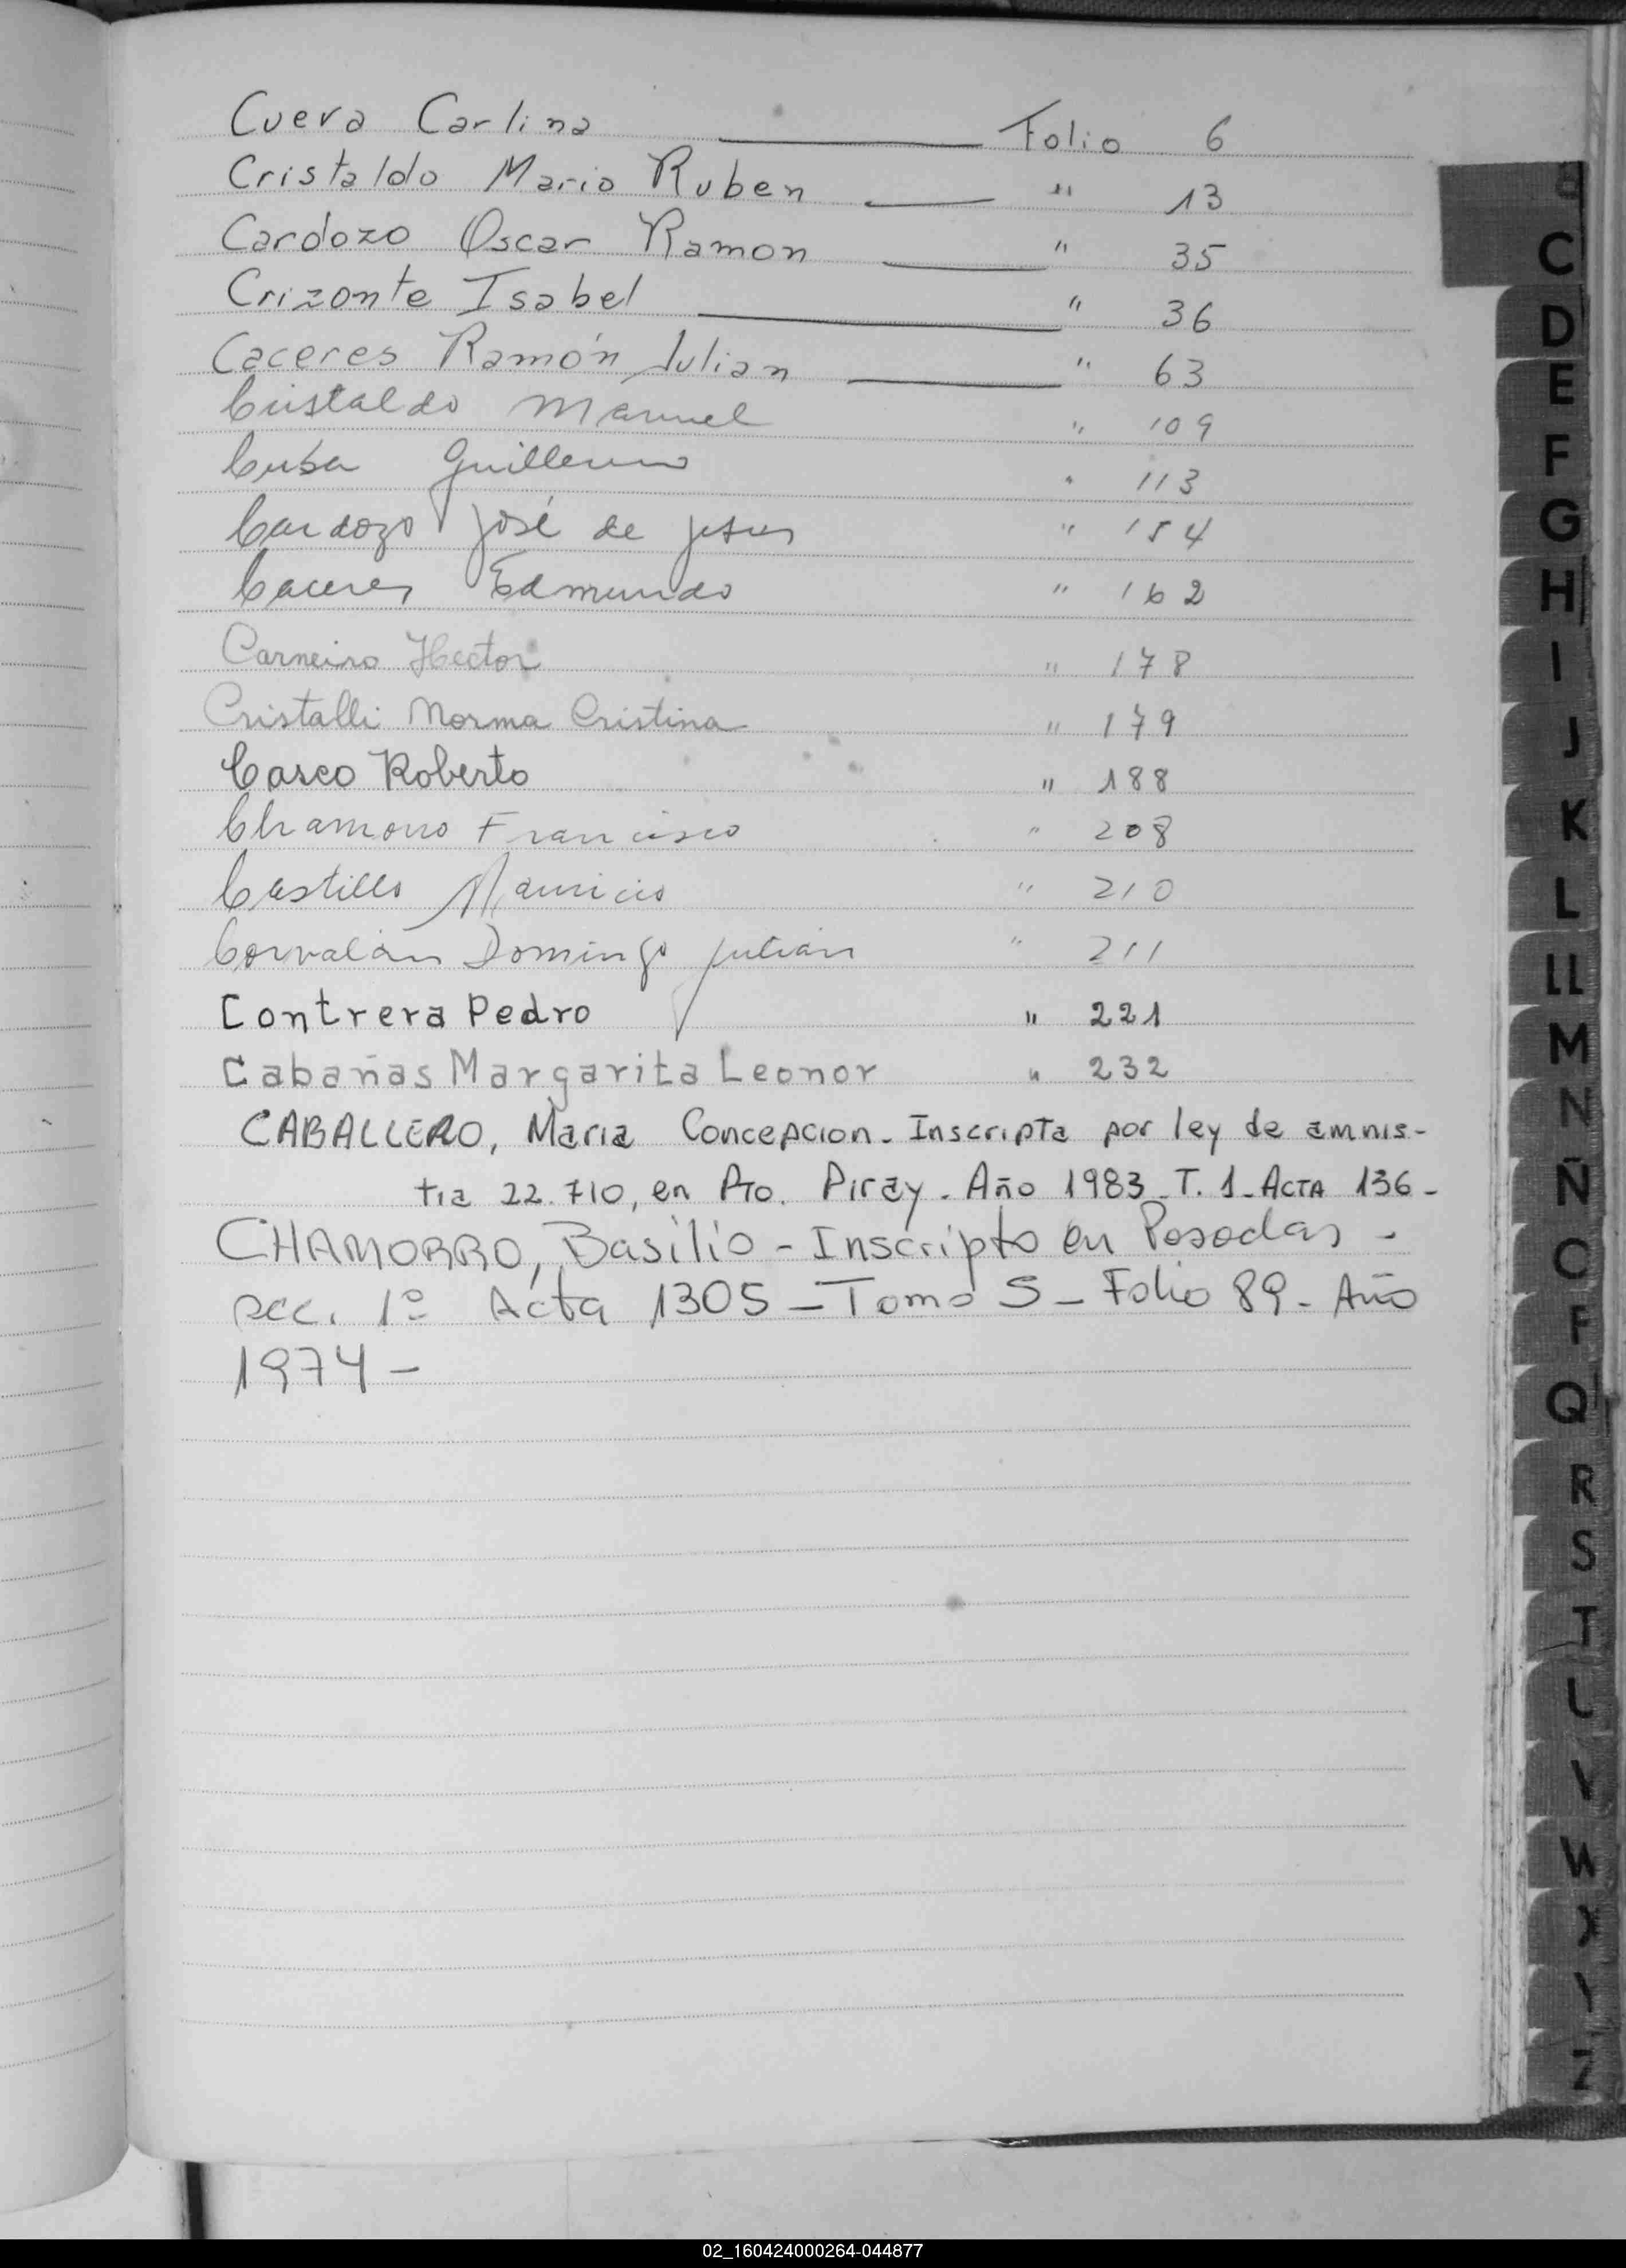 Cuera Carlina Folio 6
Cristaldo Mario Ruben " 13
Cardozo Oscar Ramon " 35
Crizonte Isabel " 36
Caceres Ramón Julian " 63
Cristaldo Manuel " 109
Cuba Guillermo " 113
Cardozo José de Jesus " 154
Caceres Edmundo " 162
Carneiro Hector " 178
Cristalli Norma Cristina " 179
Casco Roberto " 188
Chamorro Francisco " 208
Castillo Mauricio " 210
Corvalán Domingo Julián " 211
Contrera Pedro " 221
Cabañas Margarita Leonor " 232
CABALLERO, Maria Concepcion. Inscripta por ley de amnis-
tia 22.710, en Pto. Piray. Año 1983_T. 1_ACTA 136-
CHAMORRO, Basilio - Inscripto en Posadas -
sec. 1º Acta 1305 - Tomo 5 - Folio 89 - Año
1974 -
C
D
E
F
G
H
I
J
K
L
LL
M
N
Ñ
O
P
Q
R
S
T
U
V
W
X
Y
Z
02_160424000264-044877